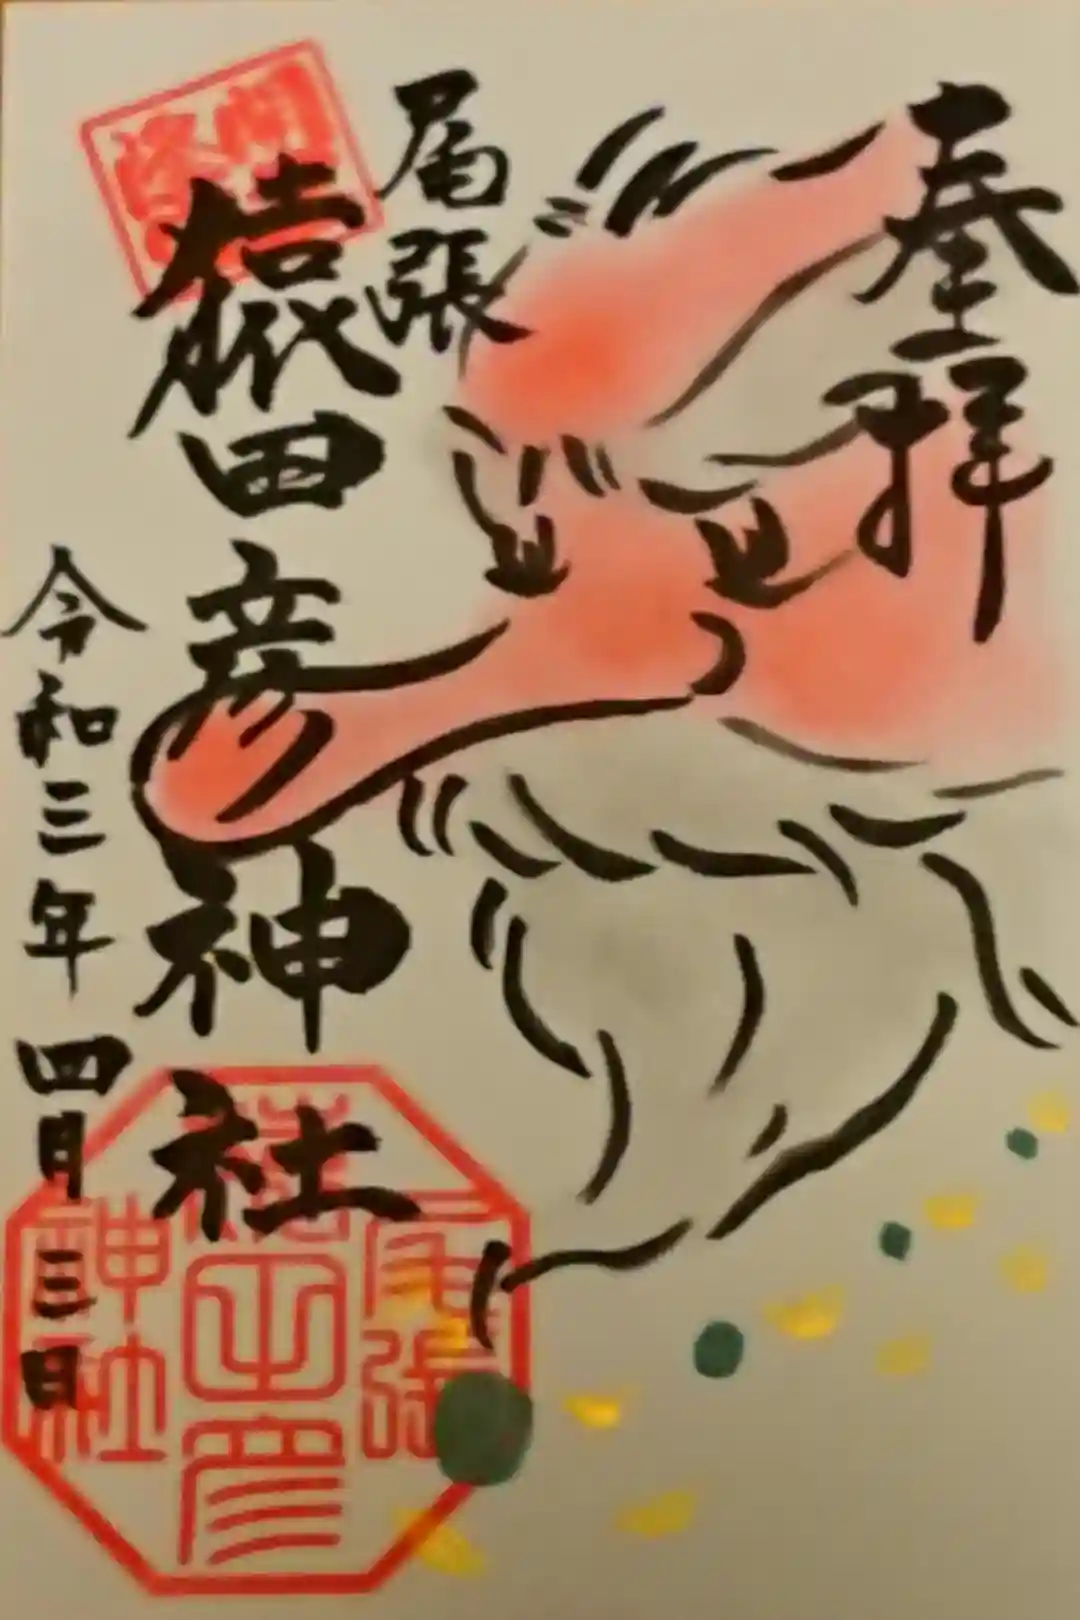 奉拝
尾張
猿田彦神社
令和三年四月三日
尾張
猿田彦
神社